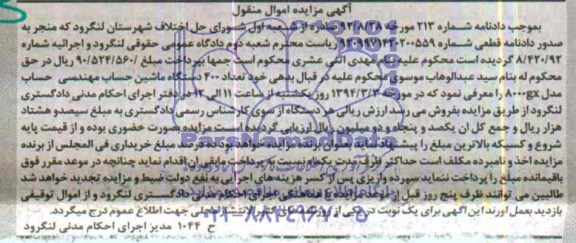 آگهی مزایده اموال منقول
بموجب دادنامه شماره ۲۱۳ مورخه ۹۲/۸/۲۸ صادره از شعبه اول شورای حل اختلاف شهرستان لنگرود که منجر به
صدور دادنامه قطعی شماره ۹۳۰۹۹۷۱۴۳۰۲۰۰۵۵۹ ریاست محترم شعبه دوم دادگاه عمومی حقوقی لنگرود و اجرائیه شماره
۸/۴۲۰/۹۳ گردیده است محکوم علیه بنام مهدی اثنی عشری محکوم است جمعا بپرداخت مبلغ ۹۰/۵۲۴/۵۶۰ ریال در حق
محکوم له بنام سید عبدالوهاب موسوی محکوم علیه در قبال بدهی خود تعداد ۴۰۰ دستگاه ماشین حساب مهندسی حساب
مدل ۸۰۰۰gx را معرفی نمود که در مورخه ۱۳۹۴/۳/۳ روز یکشنبه از ساعت ۱۱ الی ۱۲ در دفتر اجرای احکام مدنی دادگستری
لنگرود از طریق مزایده بفروش می رسد ارزش ریالی هر دستگاه از سوی کارشناس رسمی دادگستری به مبلغ سیصدو هشتاد
هزار ریال و جمع کل ان یکصد و پنجاه و دو میلیون ریال ارزیابی گردیده است مزایده بصورت حضوری بوده و از قیمت پایه
شروع و کسیکه بالاترین مبلغ را پیشنهاد نماید بعنوان برنده مزایده خواهد بود ده درصد مبلغ خریداری فی المجلس از برنده
مزایده اخذ و نامبرده مکلف است حداکثر ظرف مدت یکماه نسبت به پرداخت مابقی ان اقدام نماید چنانچه در موعد مقرر فوق
باقیمانده مبلغ را پرداخت ننماید سپرده واریزی پس از کسر هزینه های اجرایی به نفع دولت ضبط و مزایده تجدید خواهد شد
طالبین می توانند ظرف پنج روز قبل از موعد مزایده با هماهنگی اجرای احکام مدنی دادگستری لنگرود و از اموال توقیفی
بازدید بعمل اورند این آگهی برای یک نوبت در یکی از روزنامه های کثیر الانتشار محلی جهت اطلاع عموم درج میگردد.
ح ۱۰۴۴ مدیر اجرای احکام مدنی لنگرود
۰۲۱-۸۸۳۴۹۶۷۰-۵